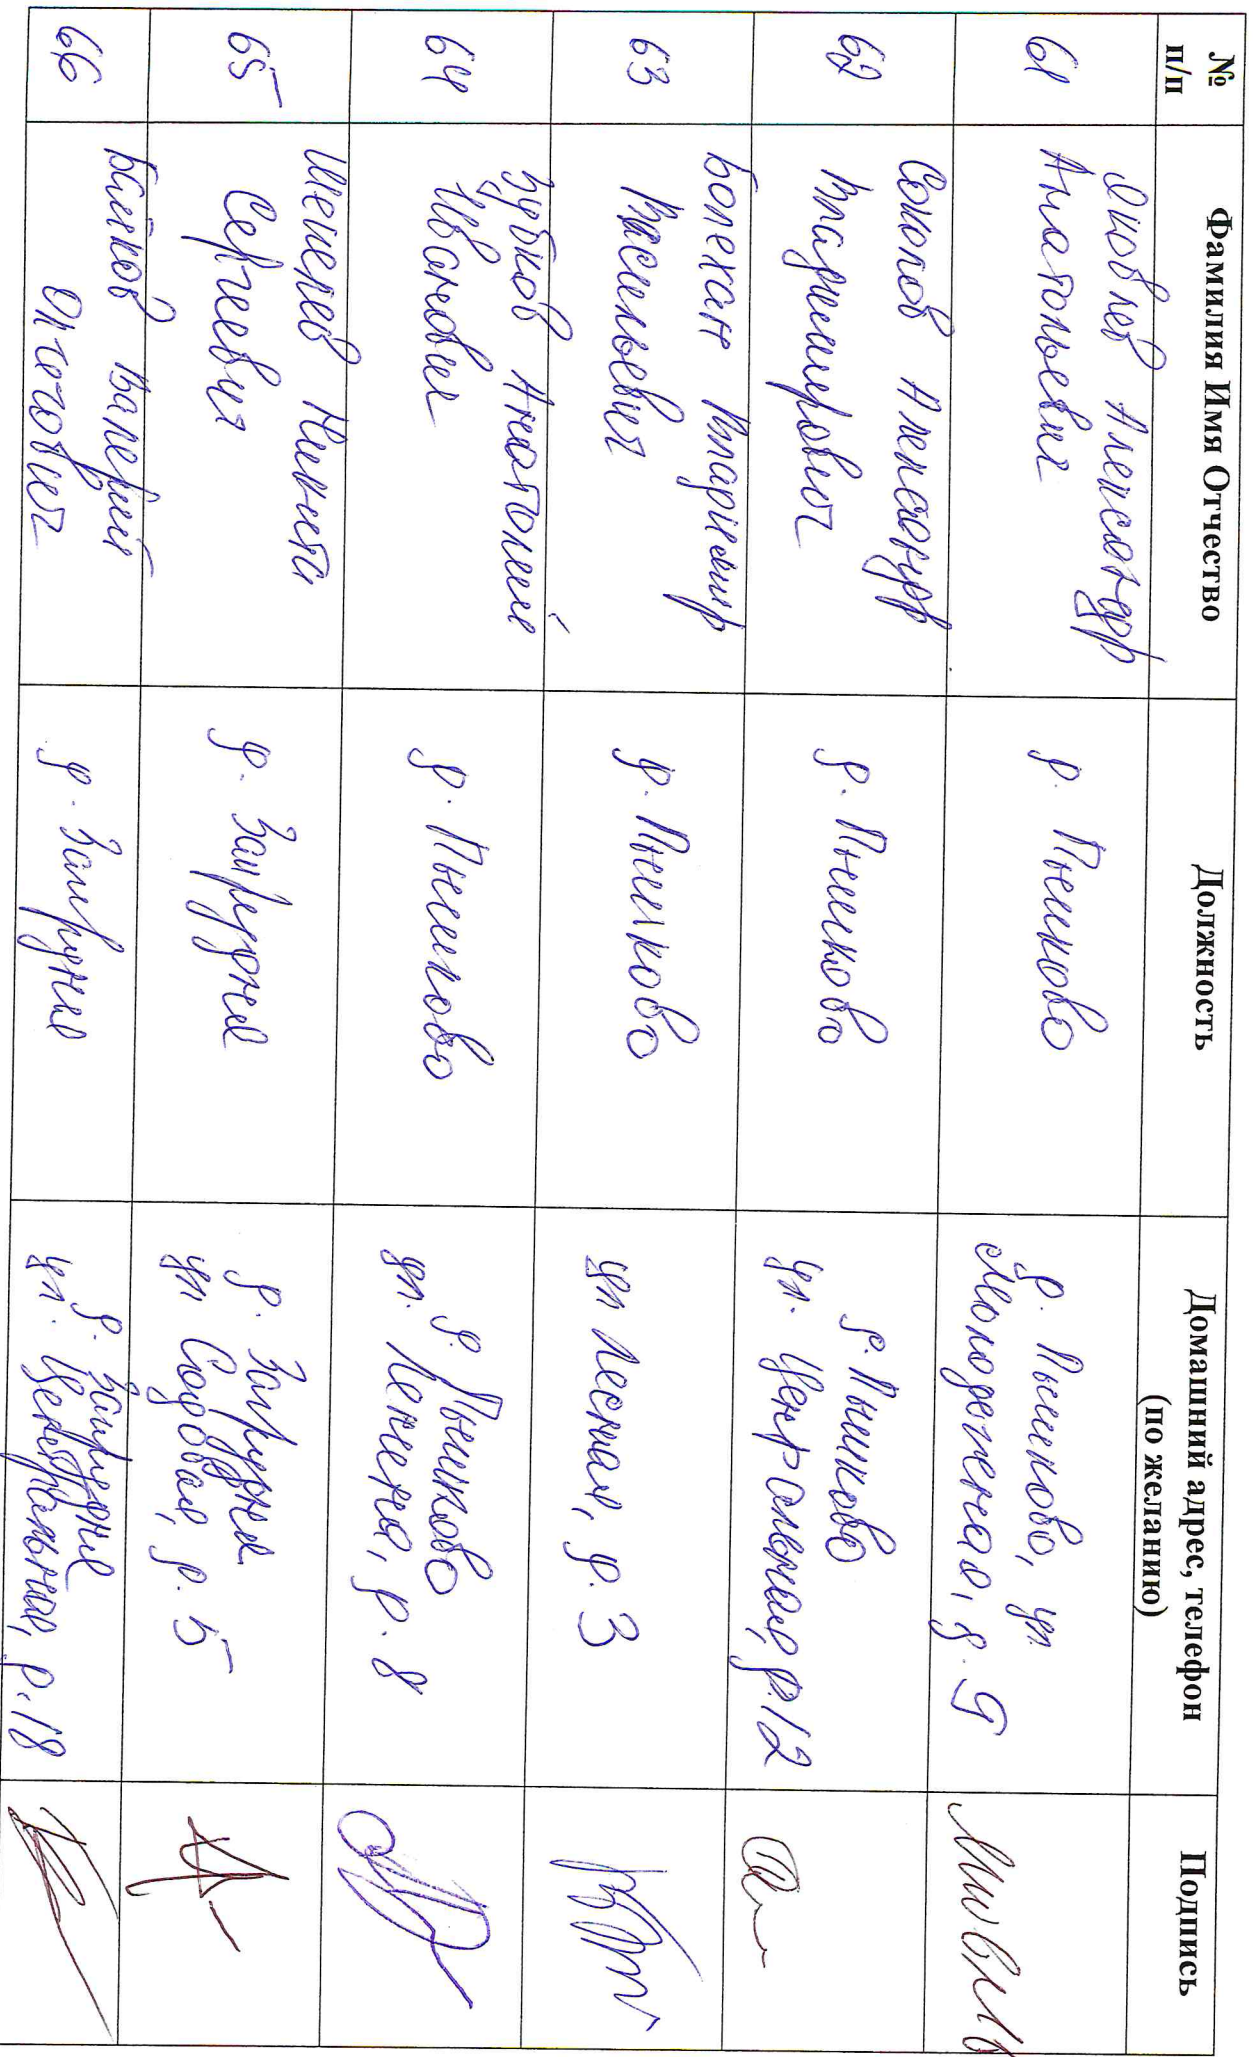 №
п/п
Фамилия Имя Отчество
Должность
Домашний адрес, телефон
(по желанию)
Подпись
61
Яковлев Александр
Анатольевич
д. Пышково
д. Пышково, ул
Молодежная, д. 9
62
Соколов Александр
Владимирович
д. Пышково
д. Пышково
ул. Центральная, д. 12
63
Болехан Владимир
Васильевич
д. Пышково
ул Лесная, д. 3
64
Зубков Анатолий
Иванович
д. Пышково
д. Пышково
ул. Ленина, д. 8
65
Шепелев Никита
Сергеевич
д. Запрудня
д. Запрудня
ул Садовая, д. 5
66
Байков Валерий
Олегович
д. Запрудня
д. Запрудня
ул. Центральная, д. 18